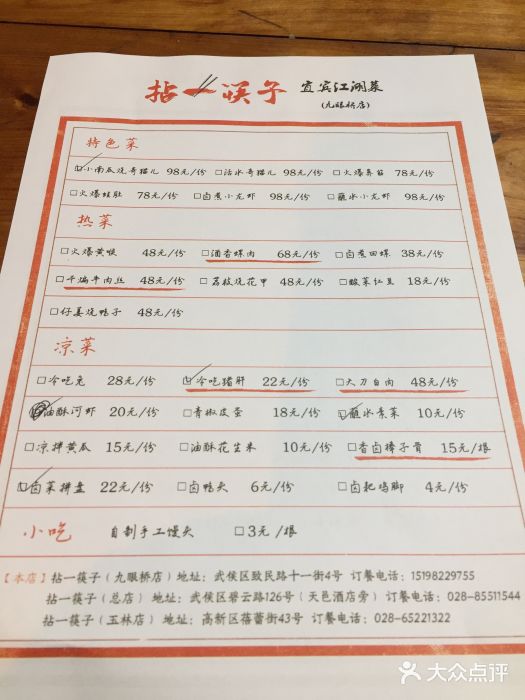 拈一筷子 宜宾江湖菜
(九眼桥店)
特色菜
□小南瓜烧哥猫儿 98元/份 □活水哥猫儿 98元/份 □火爆鼻筋 78元/份
□火爆蛙肚 78元/份 □卤煮小龙虾 98元/份 □蘸水小龙虾 98元/份
热菜
□火爆黄喉 48元/份 □酒香螺肉 68元/份 □卤煮田螺 38元/份
□干煸牛肉丝 48元/份 □荔枝烧花甲 48元/份 □酸菜红豆 18元/份
□仔姜烧鸭子 48元/份
凉菜
□冷吃兔 28元/份 □冷吃猪肝 22元/份 □大刀白肉 48元/份
油酥河虾 20元/份 □青椒皮蛋 18元/份 □蘸水素菜 10元/份
□凉拌黄瓜 15元/份 □油酥花生米 10元/份 □香卤棒子骨 15元/根
□卤菜拼盘 22元/份 □卤鸭头 6元/份 □卤耙鸡脚 4元/份
小吃 自制手工馒头 □3元/根
【本店】拈一筷子(九眼桥店)地址:武侯区致民路十一街4号 订餐电话:15198229755
拈一筷子(总店)地址:武侯区碧云路126号(天邑酒店旁)订餐电话:028-85511544
拈一筷子(玉林店)地址:高新区蓓蕾街43号 订餐电话:028-65221322
大众点评